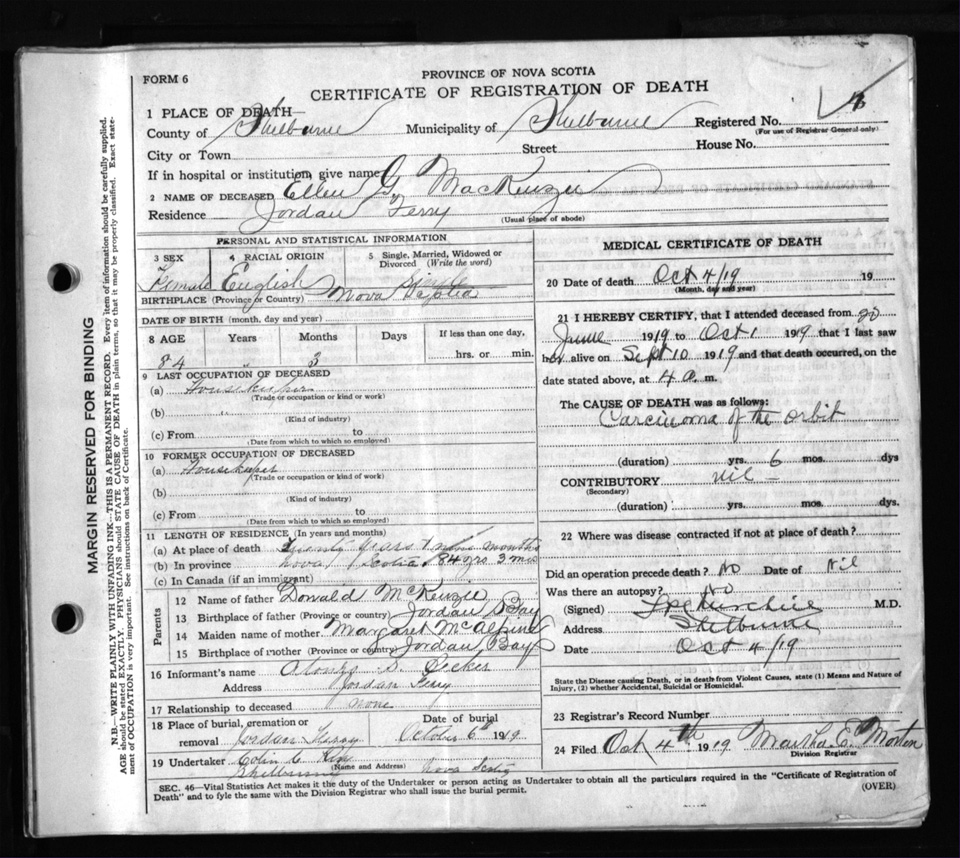 FORM 6
PROVINCE OF NOVA SCOTIA
CERTIFICATE OF REGISTRATION OF DEATH
1 PLACE OF DEATH
County of Shelburne Municipality of Shelburne Registered No. 4
(For use of Registrar General only)
City or Town Street House No.
If in hospital or institution, give name
2 NAME OF DECEASED Ellen G. MacKenzie
Residence Jordan Ferry
(Usual place of abode)
PERSONAL AND STATISTICAL INFORMATION
3 SEX 4 RACIAL ORIGIN 5 Single, Married, Widowed or Divorced (Write the word)
Female English Single
BIRTHPLACE (Province or Country) Nova Scotia
DATE OF BIRTH (month, day and year)
8 AGE Years Months Days If less than one day,
84 " 3 hrs. or min.
9 LAST OCCUPATION OF DECEASED
(a) Housekeeper
(Trade or occupation or kind or work)
(b)
(Kind of industry)
(c) From to
(Date from which to which so employed)
10 FORMER OCCUPATION OF DECEASED
(a) Housekeeper
(Trade or occupation or kind of work)
(b)
(Kind of industry)
(c) From to
(Date from which to which so employed)
11 LENGTH OF RESIDENCE (In years and months)
(a) At place of death years months
(b) In province Nova Scotia. 84 yrs 3 mos
(c) In Canada (if an immigrant)
Parents
12 Name of father Donald McKenzie
13 Birthplace of father (Province or country) Jordan Bay
14 Maiden name of mother Margaret McAlpine
15 Birthplace of mother (Province or country) Jordan Bay
16 Informant's name Decker
Address Jordan Ferry
17 Relationship to deceased none
18 Place of burial, cremation or Date of burial
removal Jordan Ferry October 6th 1919
19 Undertaker Colin C.
(Name and Address)
Shelburne Nova Scotia
MEDICAL CERTIFICATE OF DEATH
20 Date of death Oct 4/19 19
(Month, day and year)
21 I HEREBY CERTIFY, that I attended deceased from 20
June 1919 to Oct 1 1919 that I last saw
her alive on Sept 10 1919 and that death occurred, on the
date stated above, at 4 a. m.
The CAUSE OF DEATH was as follows:
Carcinoma of the orbit
(duration) yrs. 6 mos. dys
CONTRIBUTORY nil -
(Secondary)
(duration) yrs. mos. dys.
22 Where was disease contracted if not at place of death?
Did an operation precede death? No Date of Nil
Was there an autopsy? No
(Signed) M.D.
Address Shelburne
Date Oct 4/19
State the Disease causing Death, or in death from Violent Causes, state (1) Means and Nature of
Injury, (2) whether Accidental, Suicidal or Homicidal.
23 Registrar's Record Number
24 Filed Oct 4th 1919 Martha E. Morton
Division Registrar
SEC. 46—Vital Statistics Act makes it the duty of the Undertaker or person acting as Undertaker to obtain all the particulars required in the "Certificate of Registration of
Death" and to fyle the same with the Division Registrar who shall issue the burial permit. (OVER)
MARGIN RESERVED FOR BINDING
N.B.—WRITE PLAINLY WITH UNFADING INK—THIS IS A PERMANENT RECORD. Every item of information should be carefully supplied.
AGE should be stated EXACTLY. PHYSICIANS should STATE CAUSE OF DEATH in plain terms, so that it may be properly classified. Exact state-
ment of OCCUPATION is very important. See instructions on back of Certificate.